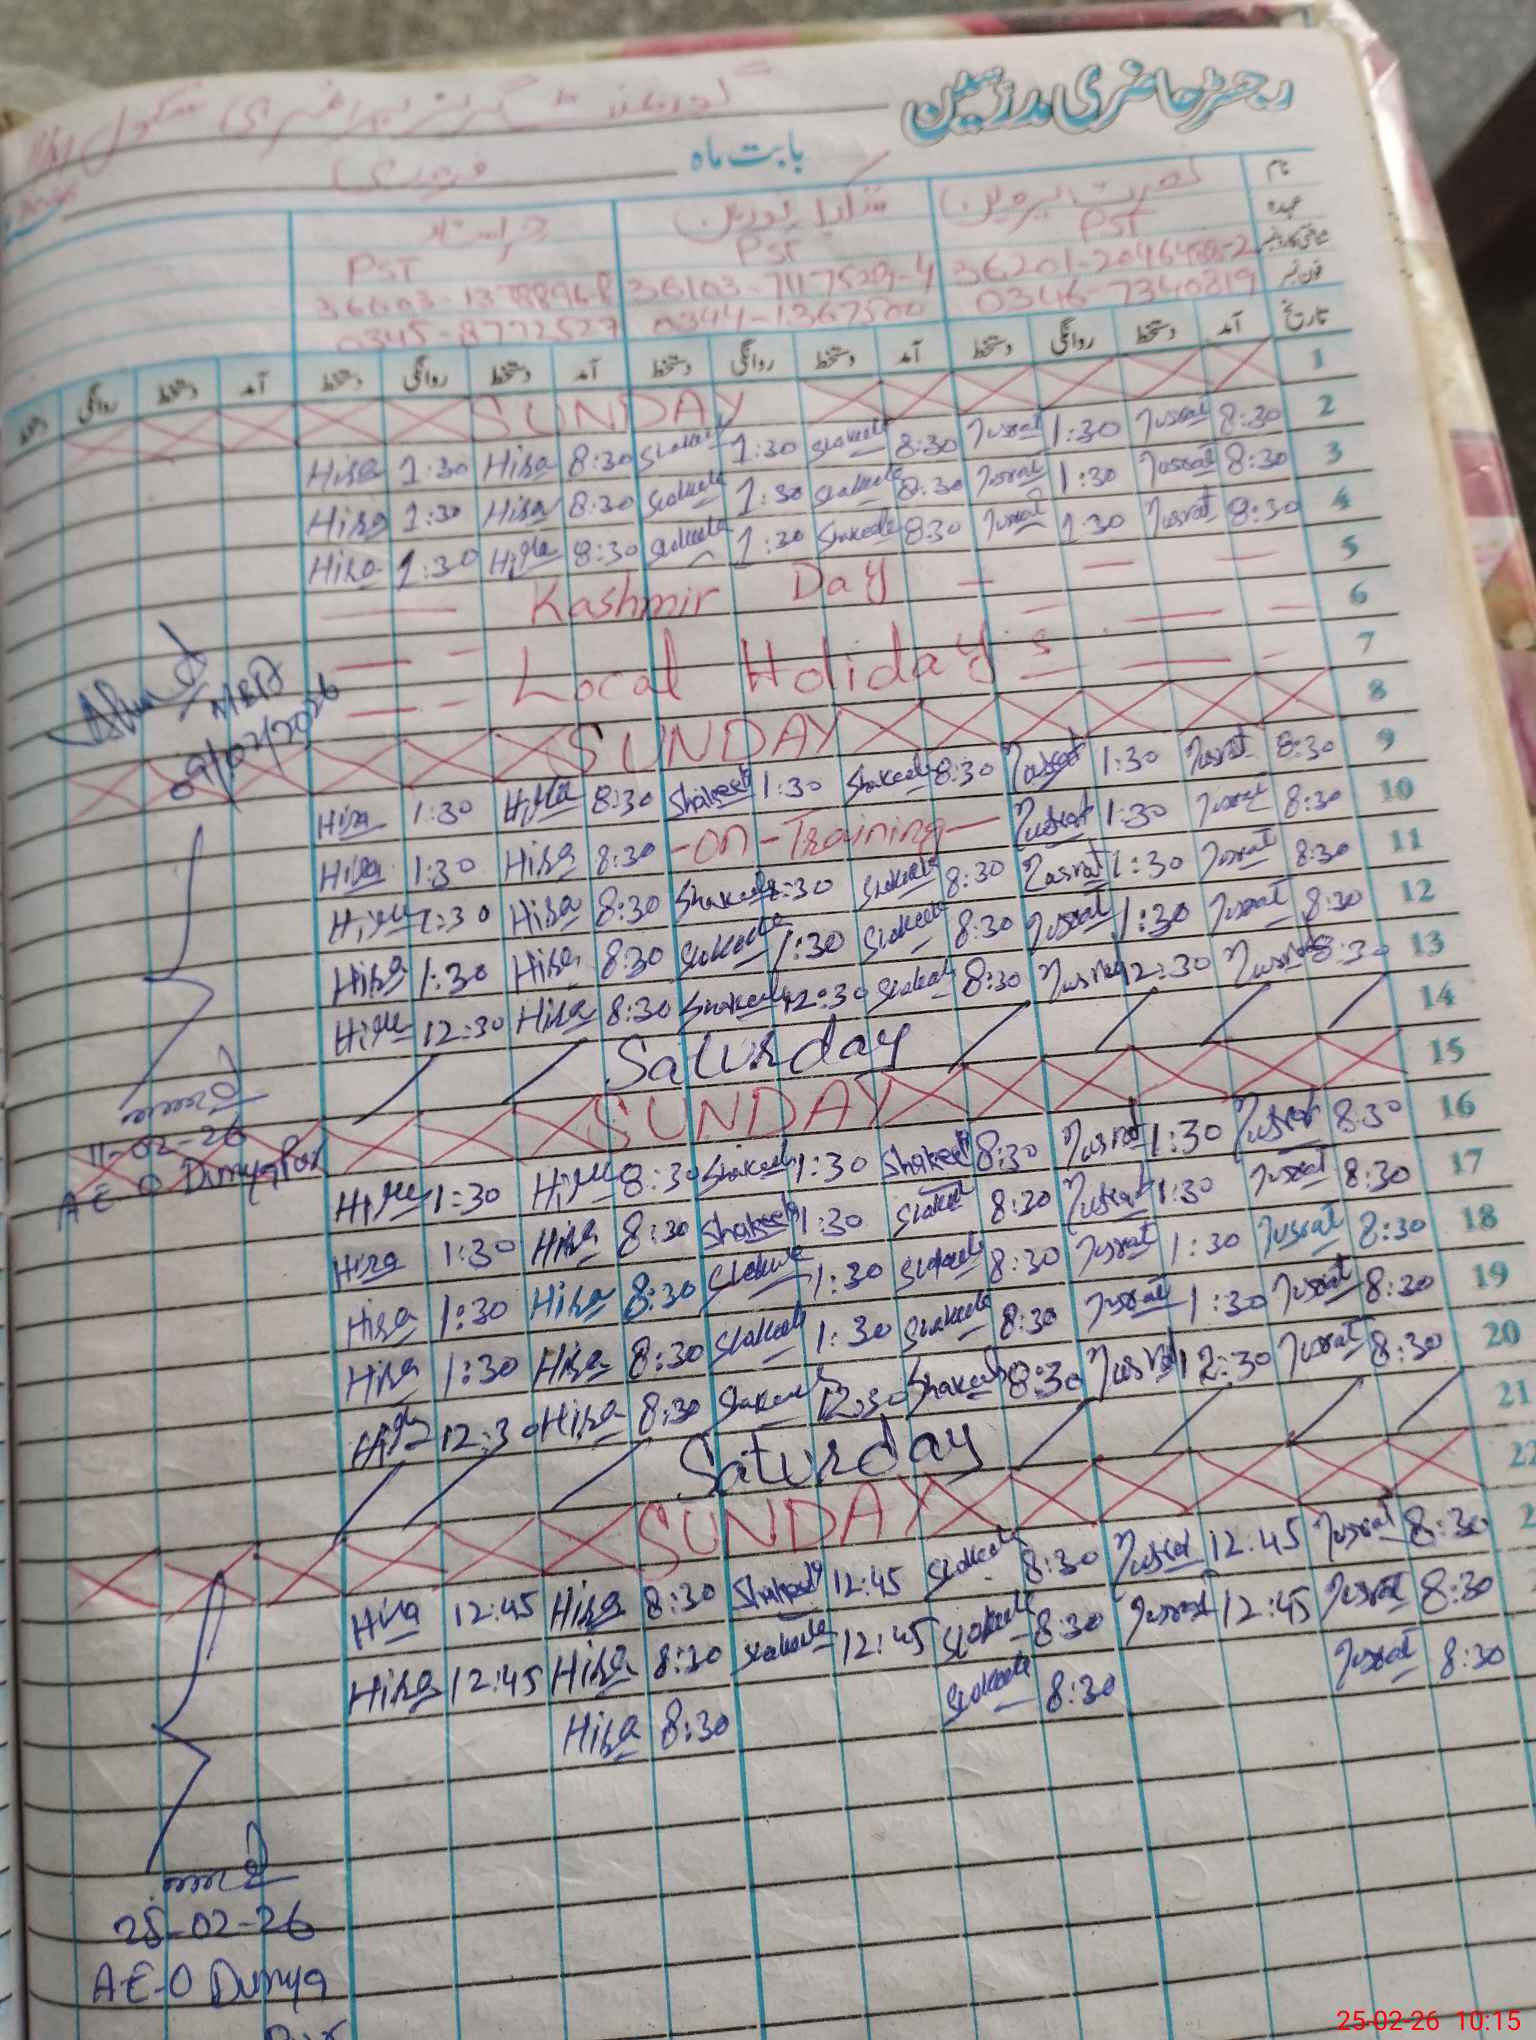 رجسٹر حاضری مدرسین گورنمنٹ گرلز پرائمری سکول
بابت ماہ فروری
نام نصرت پروین شکیلہ نورین حرا ستار
عہدہ PST PST PST
شناختی کارڈ نمبر
فون نمبر 0346-7340819 0344-1367500 0345-8772527
تاریخ آمد دستخط روانگی دستخط آمد دستخط روانگی دستخط آمد دستخط روانگی دستخط آمد دستخط روانگی دستخط
1 SUNDAY
2 8:30 Nusrat 1:30 Nusrat 8:30 Shakeela 1:30 Shakeela 8:30 Hira 1:30 Hira
3 8:30 Nusrat 1:30 Nusrat 8:30 Shakeela 1:30 Shakeela 8:30 Hira 1:30 Hira
4 8:30 Nusrat 1:30 Nusrat 8:30 Shakeela 1:30 Shakeela 8:30 Hira 1:30 Hira
5 Kashmir Day
6
7 Local Holiday's
8 SUNDAY
MEA
09/02/2026
9 8:30 Nusrat 1:30 Nusrat 8:30 Shakeela 1:30 Shakeela 8:30 Hira 1:30 Hira
10 8:30 Nusrat 1:30 Nusrat -on-Training- 8:30 Hira 1:30 Hira
11 8:30 Nusrat 1:30 Nusrat 8:30 Shakeela 1:30 Shakeela 8:30 Hira 1:30 Hira
12 8:30 Nusrat 1:30 Nusrat 8:30 Shakeela 1:30 Shakeela 8:30 Hira 1:30 Hira
13 8:30 Nusrat 12:30 Nusrat 8:30 Shakeela 12:30 Shakeela 8:30 Hira 12:30 Hira
14 Saturday
15 SUNDAY
11-02-26
A E O Dunyapur
16 8:30 Nusrat 1:30 Nusrat 8:30 Shakeela 1:30 Shakeela 8:30 Hira 1:30 Hira
17 8:30 Nusrat 1:30 Nusrat 8:30 Shakeela 1:30 Shakeela 8:30 Hira 1:30 Hira
18 8:30 Nusrat 1:30 Nusrat 8:30 Shakeela 1:30 Shakeela 8:30 Hira 1:30 Hira
19 8:30 Nusrat 1:30 Nusrat 8:30 Shakeela 1:30 Shakeela 8:30 Hira 1:30 Hira
20 8:30 Nusrat 12:30 Nusrat 8:30 Shakeela 12:30 Shakeela 8:30 Hira 12:30 Hira
21 Saturday
22 SUNDAY
2 8:30 Nusrat 12:45 Nusrat 8:30 Shakeela 12:45 Shakeela 8:30 Hira 12:45 Hira
8:30 Nusrat 12:45 Nusrat 8:30 Shakeela 12:45 Shakeela 8:30 Hira 12:45 Hira
8:30 Nusrat 8:30 Shakeela 8:30 Hira
25-02-26
A E O Dunya
pur
25-02-26 10:15